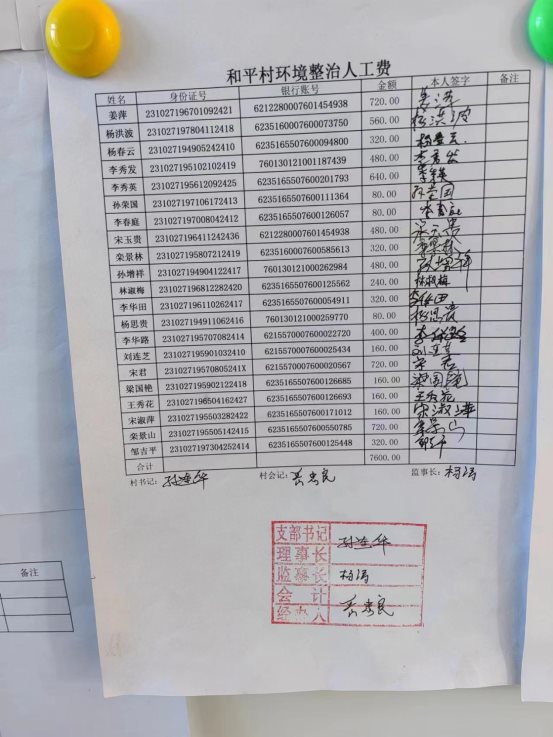 和平村环境整治人工费
姓名 身份证号 银行账号 金额 本人签字 备注
姜萍 231027196701092421 6212280007601454938 720.00 姜萍
杨洪波 231027197804112418 6235160007600073750 560.00 杨洪波
杨春云 231027194905242410 6235165507600094800 320.00 杨春云
李秀发 231027195102102419 760130121001187439 480.00 李秀发
李秀英 231027195612092425 6235165507600201793 640.00
孙荣国 231027197106172413 6235165507600111364 80.00 孙荣国
李春庭 231027197008042412 6235165507600126057 80.00
宋玉贵 231027196411242436 6212280007601454938 480.00 宋玉贵
栾景林 231027195807212419 6235160007600585613 320.00 栾景林
孙增祥 231027194904122417 760130121000262984 480.00 孙增祥
林淑梅 231027196812282420 6235165507600125562 240.00 林淑梅
李华田 231027196110262417 6235165507600054911 320.00 李华田
杨思贵 231027194911062416 760130121000259770 80.00
李华路 231027195707082414 6215570007600022720 400.00 李华路
刘连芝 231027195901032410 6235165507600025434 160.00 刘连芝
宋君 23102719570805241X 6235160007600020567 720.00 宋君
梁国艳 231027195902122418 6235165507600126685 160.00 梁国艳
王秀花 231027196504162427 6235165507600126693 160.00 王秀花
宋淑萍 231027195503282422 6235165507600171012 160.00 宋淑萍
栾景山 231027195505142415 6235160007600550785 720.00 栾景山
邹吉平 231027197304252414 6235165507600125448 320.00
合计 7600.00
村书记： 孙连华 村会记： 监事长： 杨涛
支部书记 孙连华
理事长
监事长 杨涛
会计
经办人
备注